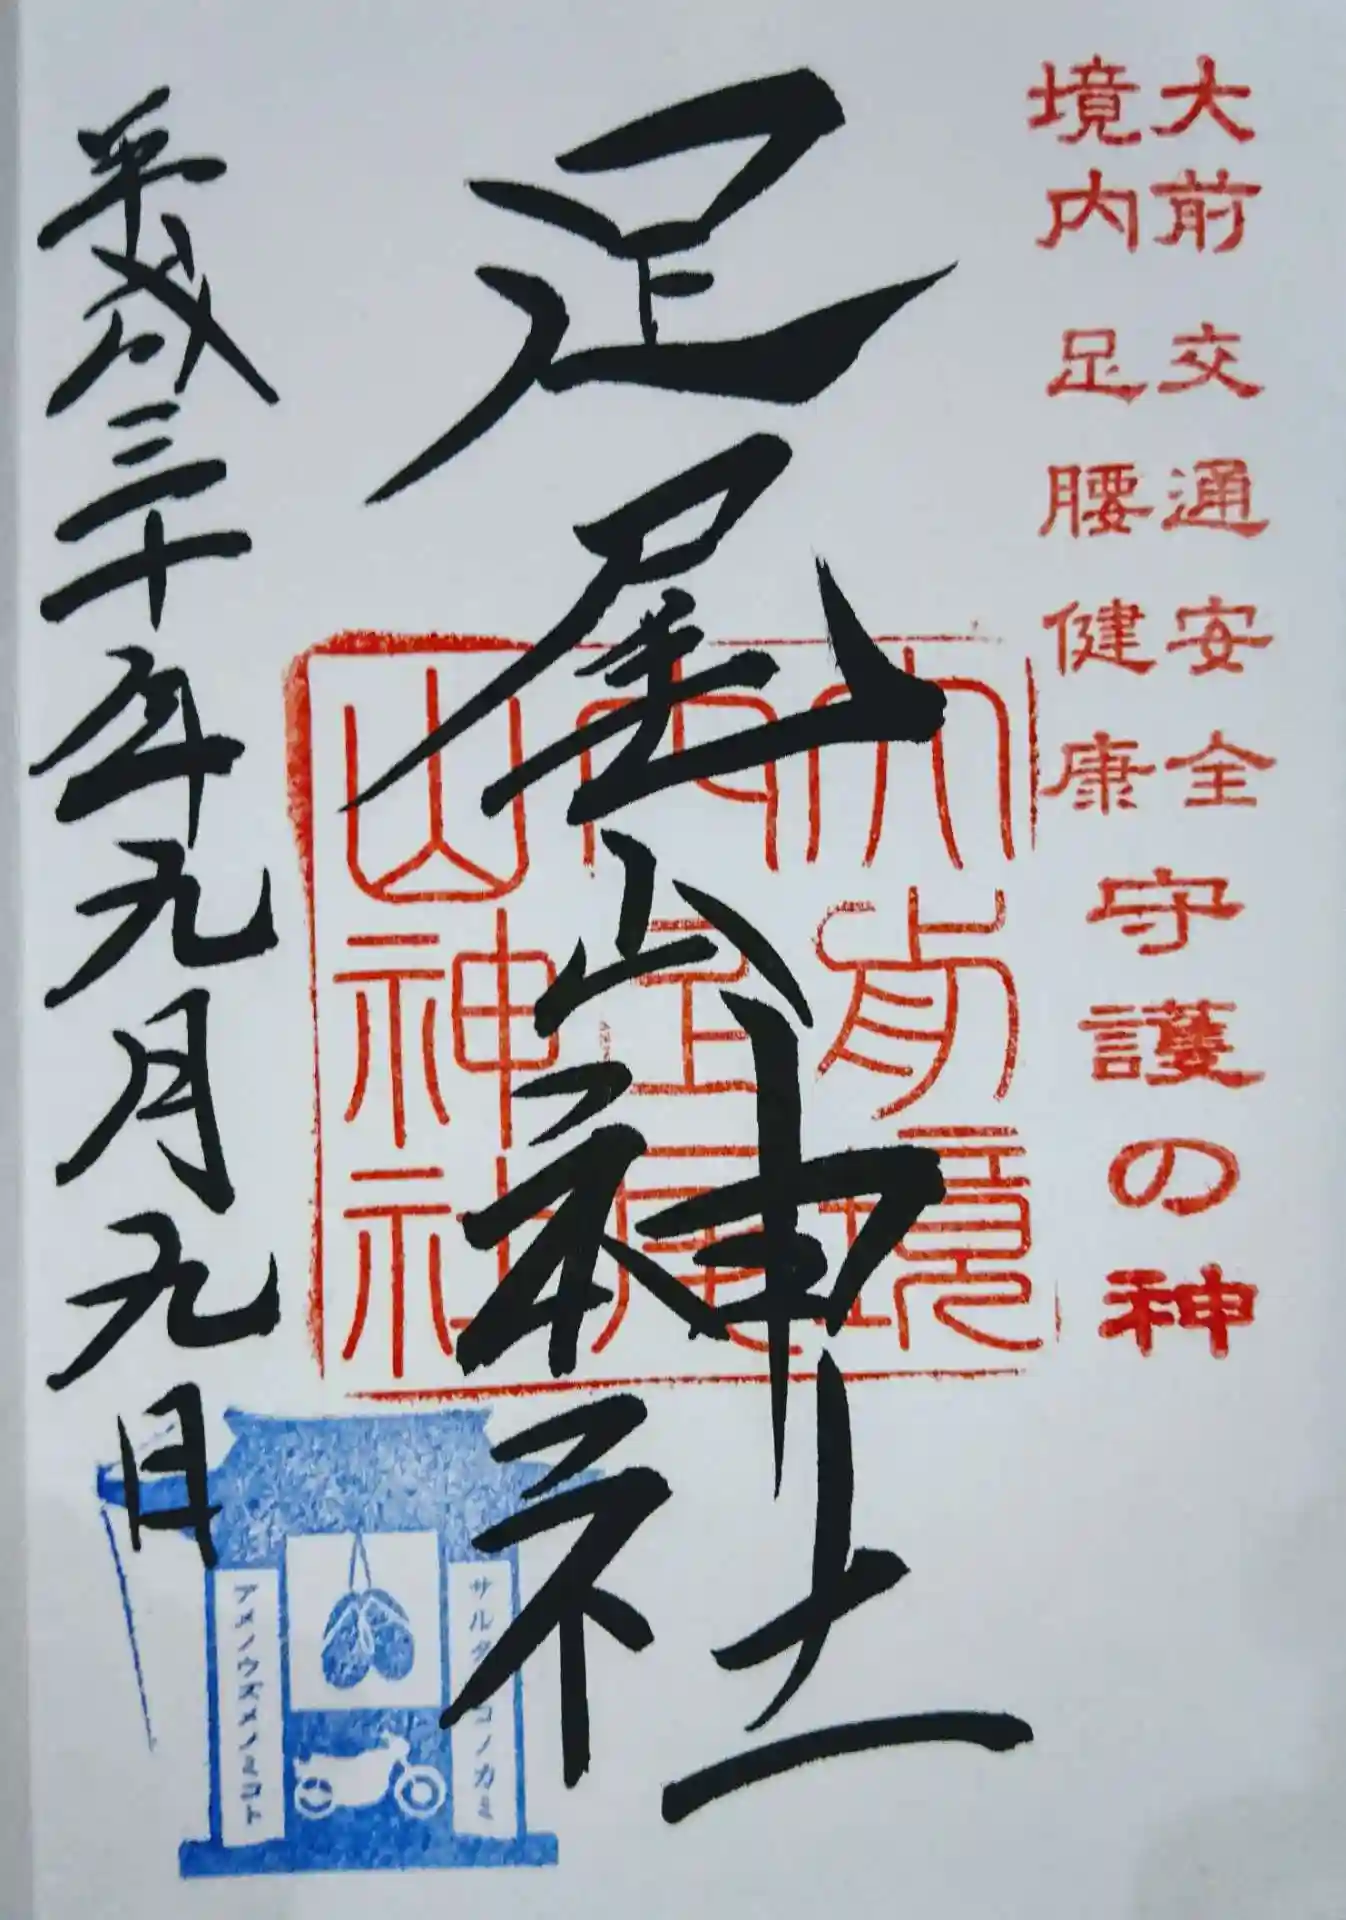 大前 交通安全
境内 足腰健康
守護の神
足尾山神社
大前境
内足尾
山神社
平成三十年九月九日
サルタヒコノカミ
アメノウズメノミコト